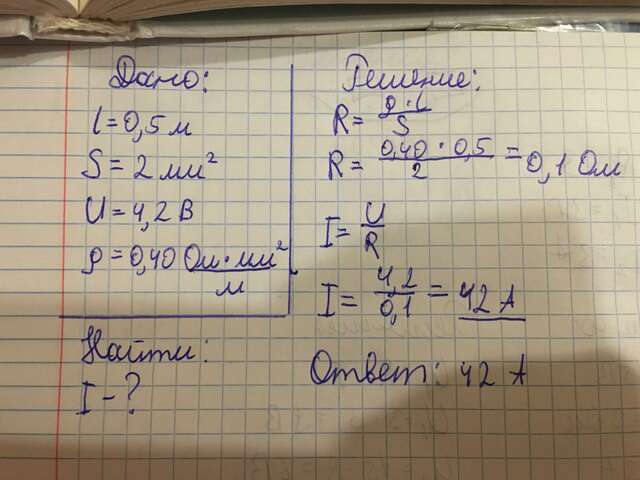 Дано:
l = 0,5 м
S = 2 мм²
U = 4,2 В
ρ = 0,40 Ом·мм²/м
Найти:
I - ?
Решение:
R = ρ·l/S
R = 0,40·0,5/2 = 0,1 Ом
I = U/R
I = 4,2/0,1 = 42 А
Ответ: 42 А